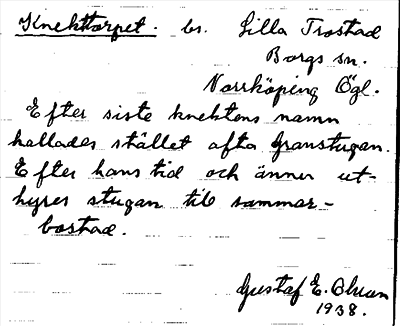 Knekttorpet. br. Lilla Trostad
Borgs sn.
Norrköping Ögl.
Efter siste knektens namn
kallades stället ofta Granstugan.
Efter hans tid och ännu ut-
hyres stugan till sommar-
bostad.
Gustaf E.
1938.